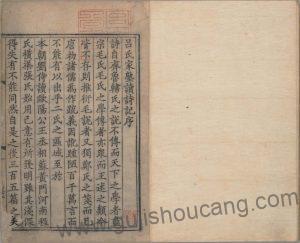 呂氏家塾讀詩記序
詩自齊魯韓氏之說不傳而天下之學者盡
宗毛氏毛氏之學傳者亦眾而王述之類今
皆不存則推衍毛說者又獨鄭氏之箋而已
唐初諸儒為作疏義因訛踵陋百千萬言而
不能有以出乎二氏之區域至於
本朝劉侍讀歐陽公王丞相蘇黃門河南程
氏橫渠張氏始用己意有所發明雖其淺深
得失有不能同然自是之後三百五篇之微
guishoucang.com